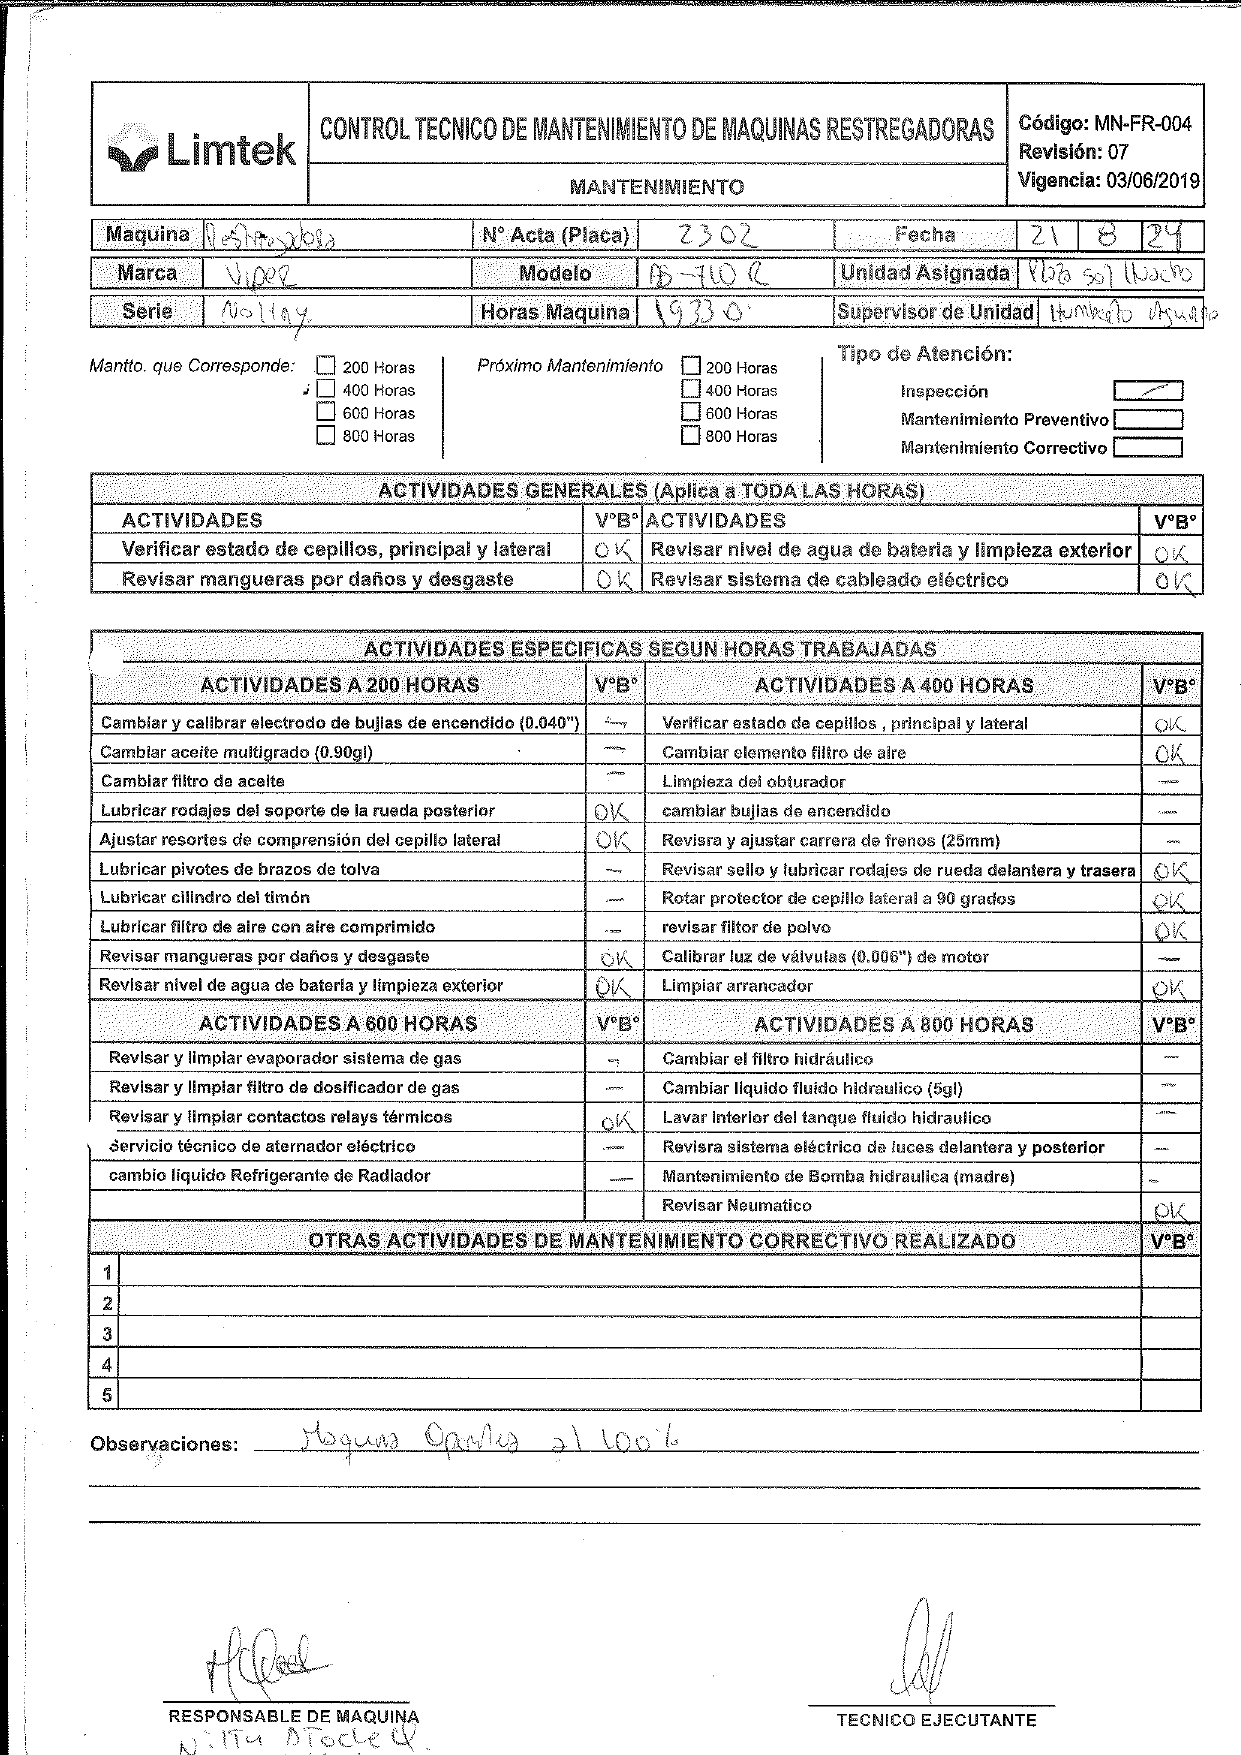 Limtek
CONTROL TECNICO DE MANTENIMIENTO DE MAQUINAS RESTREGADORAS
MANTENIMIENTO
Código: MN-FR-004
Revisión: 07
Vigencia: 03/06/2019
Maquina N° Acta (Placa) 2302 Fecha 21 8 24
Marca Viper Modelo AS-710 R Unidad Asignada Sol
Serie Horas Maquina 1933 0 Supervisor de Unidad Humberto
Mantto. que Corresponde: 200 Horas Próximo Mantenimiento 200 Horas Tipo de Atención:
400 Horas 400 Horas Inspección
600 Horas 600 Horas Mantenimiento Preventivo
800 Horas 800 Horas Mantenimiento Correctivo
ACTIVIDADES GENERALES (Aplica a TODA LAS HORAS)
ACTIVIDADES V°B° ACTIVIDADES V°B°
Verificar estado de cepillos, principal y lateral OK Revisar nivel de agua de bateria y limpieza exterior OK
Revisar mangueras por daños y desgaste OK Revisar sistema de cableado eléctrico OK
ACTIVIDADES ESPECIFICAS SEGUN HORAS TRABAJADAS
ACTIVIDADES A 200 HORAS V°B° ACTIVIDADES A 400 HORAS V°B°
Cambiar y calibrar electrodo de bujias de encendido (0.040") — Verificar estado de cepillos , principal y lateral OK
Cambiar aceite multigrado (0.90gl) — Cambiar elemento filtro de aire OK
Cambiar filtro de aceite — Limpieza del obturador —
Lubricar rodajes del soporte de la rueda posterior OK cambiar bujias de encendido —
Ajustar resortes de comprensión del cepillo lateral OK Revisra y ajustar carrera de frenos (25mm) —
Lubricar pivotes de brazos de tolva — Revisar sello y lubricar rodajes de rueda delantera y trasera OK
Lubricar cilindro del timón — Rotar protector de cepillo lateral a 90 grados OK
Lubricar filtro de aire con aire comprimido — revisar filtor de polvo OK
Revisar mangueras por daños y desgaste OK Calibrar luz de válvulas (0.006") de motor —
Revisar nivel de agua de bateria y limpieza exterior OK Limpiar arrancador OK
ACTIVIDADES A 600 HORAS V°B° ACTIVIDADES A 800 HORAS V°B°
Revisar y limpiar evaporador sistema de gas — Cambiar el filtro hidráulico —
Revisar y limpiar filtro de dosificador de gas — Cambiar liquido fluido hidraulico (5gl) —
Revisar y limpiar contactos relays térmicos OK Lavar interior del tanque fluido hidraulico —
Servicio técnico de aternador eléctrico — Revisra sistema eléctrico de luces delantera y posterior —
cambio liquido Refrigerante de Radiador — Mantenimiento de Bomba hidraulica (madre) —
Revisar Neumatico OK
OTRAS ACTIVIDADES DE MANTENIMIENTO CORRECTIVO REALIZADO V°B°
1
2
3
4
5
Observaciones: Maquina al 100%
RESPONSABLE DE MAQUINA
TECNICO EJECUTANTE